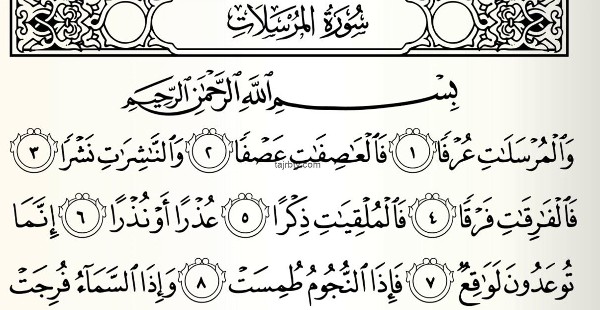 سُورَةُ المُرۡسَلَات
بِسۡمِ ٱللَّهِ ٱلرَّحۡمَٰنِ ٱلرَّحِيمِ
وَٱلۡمُرۡسَلَٰتِ عُرۡفٗا ١ فَٱلۡعَٰصِفَٰتِ عَصۡفٗا ٢ وَٱلنَّٰشِرَٰتِ نَشۡرٗا ٣
tajribty.com
فَٱلۡفَٰرِقَٰتِ فَرۡقٗا ٤ فَٱلۡمُلۡقِيَٰتِ ذِكۡرًا ٥ عُذۡرًا أَوۡ نُذۡرًا ٦ إِنَّمَا
تُوعَدُونَ لَوَٰقِعٞ ٧ فَإِذَا ٱلنُّجُومُ طُمِسَتۡ ٨ وَإِذَا ٱلسَّمَآءُ فُرِجَتۡ